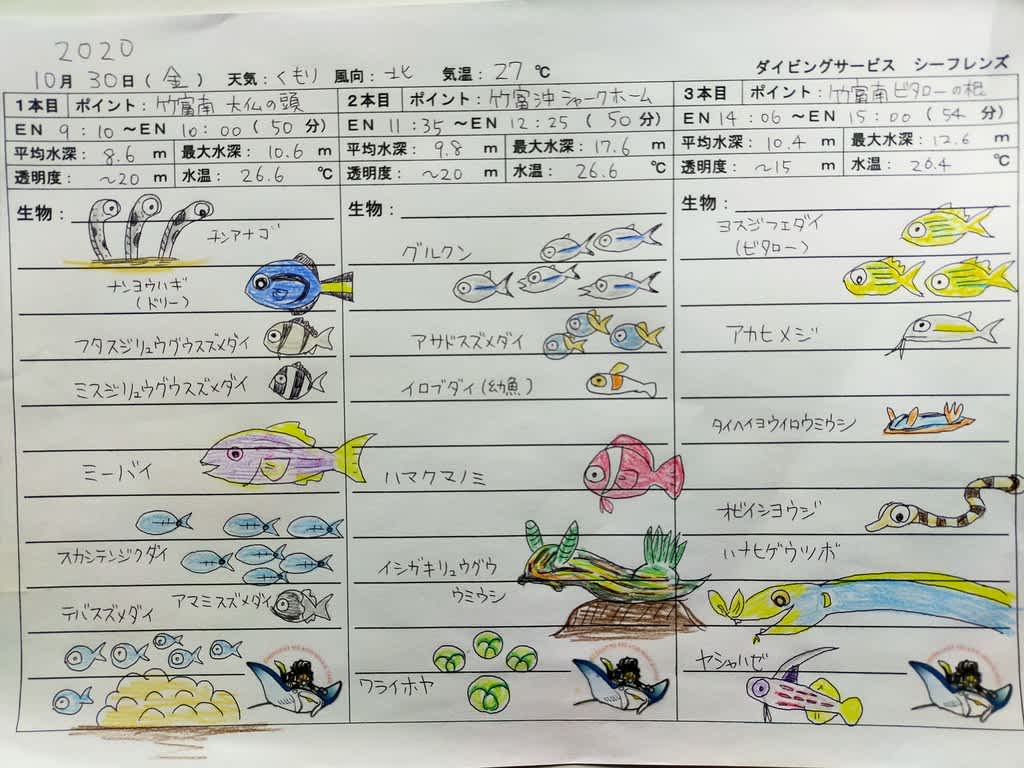 2020
10月 30日(金) 天気:くもり 風向:北 気温:27℃
ダイビングサービス シーフレンズ
1本目 ポイント:竹富南 大仏の頭
EN 9:10 ~EN 10:00 (50分)
平均水深: 8.6 m 最大水深: 10.6 m
透明度: ~20 m 水温: 26.6 ℃
生物:
チンアナゴ
ナンヨウハギ
(ドリー)
フタスジリュウグウスズメダイ
ミスジリュウグウスズメダイ
ミーバイ
スカシテンジクダイ
アマミスズメダイ
デバスズメダイ
2本目 ポイント:竹富沖シャークホーム
EN 11:35 ~EN 12:25 (50分)
平均水深: 9.8 m 最大水深: 17.6 m
透明度: ~20 m 水温: 26.6 ℃
生物:
グルクン
アサドスズメダイ
イロブダイ(幼魚)
ハマクマノミ
イシガキリュウグウ
ウミウシ
ワライボヤ
3本目 ポイント:竹富南ビタローの根
EN 14:06 ~EN 15:00 (54分)
平均水深: 10.4 m 最大水深: 12.6 m
透明度: ~15 m 水温: 26.4 ℃
生物:
ヨスジフエダイ
(ビタロー)
アカヒメジ
タイヘイヨウイロウミウシ
オビイシヨウジ
ハナヒゲウツボ
ヤシャハゼ